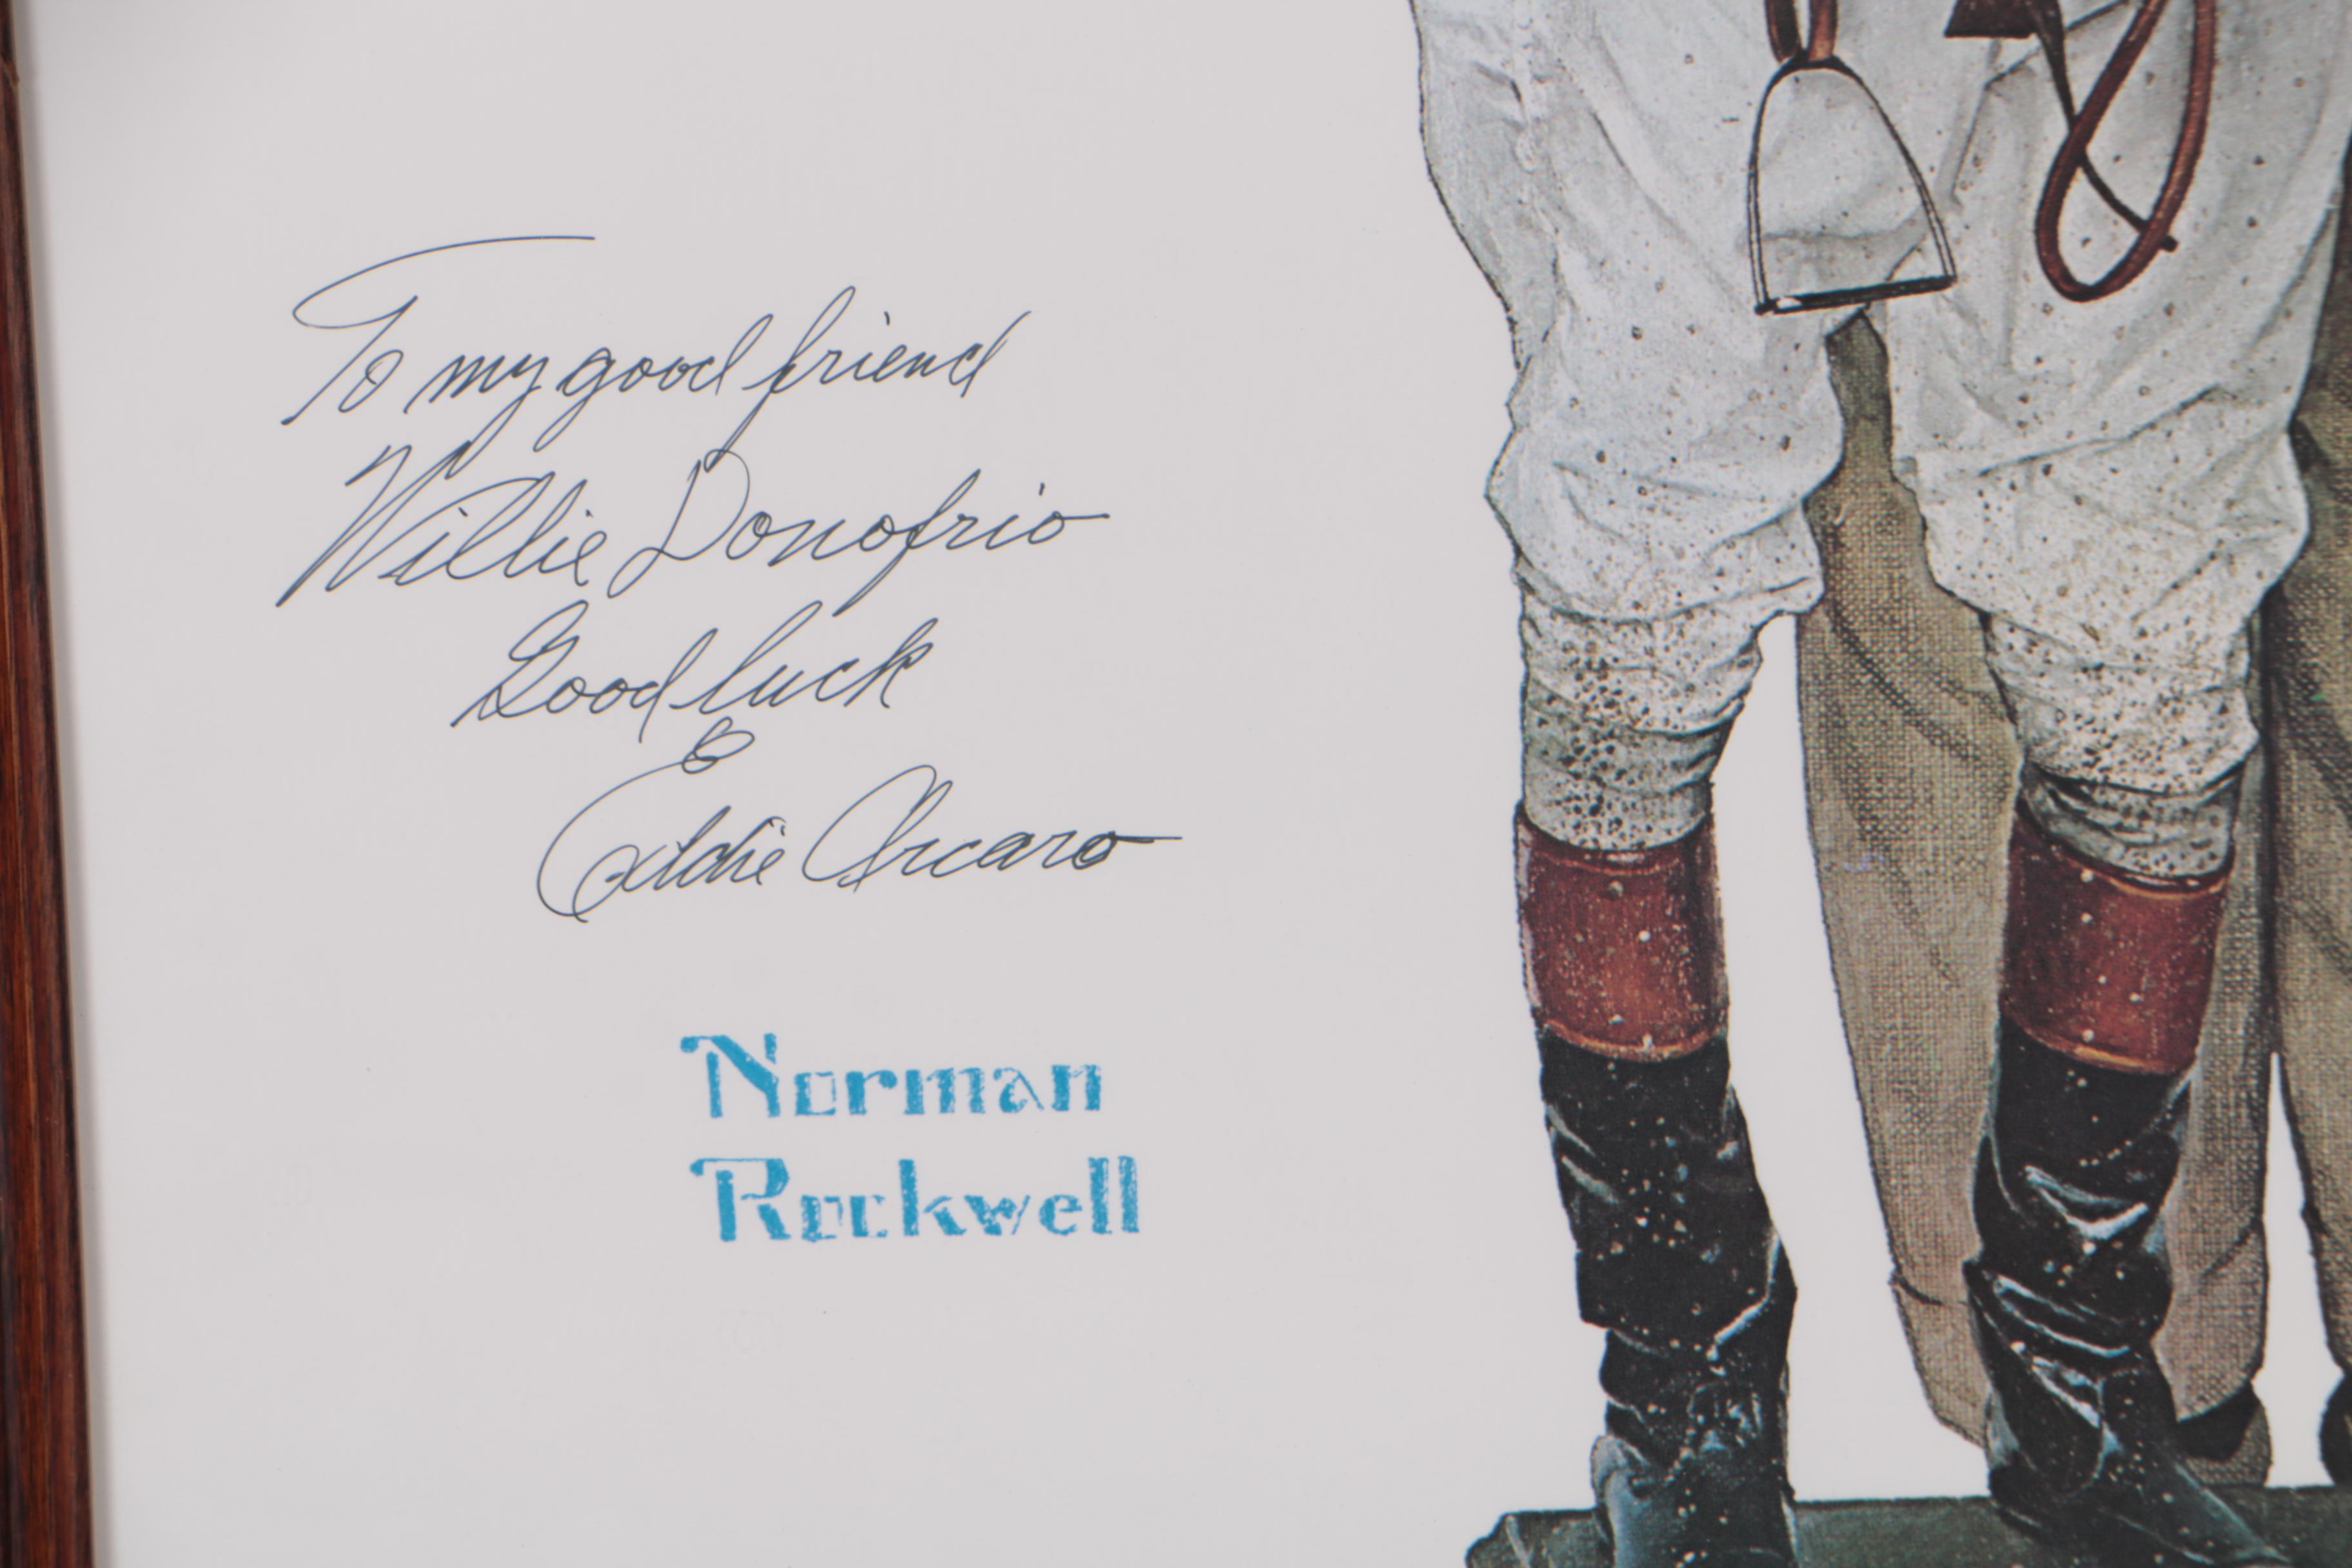 To my good friend
Willie Donofrio
Good luck
Eddie Arcaro
Norman
Rockwell